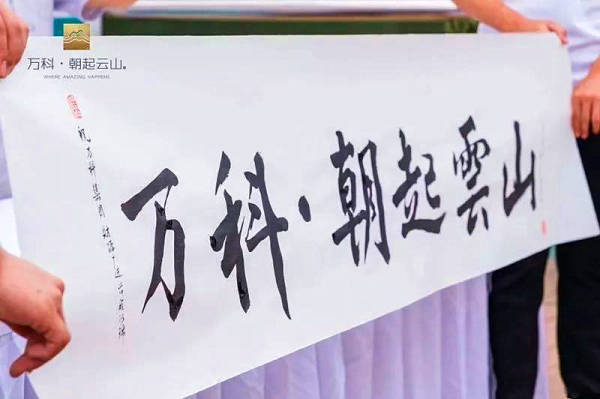 万科·朝起云山
WHERE AMAZING HAPPENS
万科·朝起雲山
祝万科集团